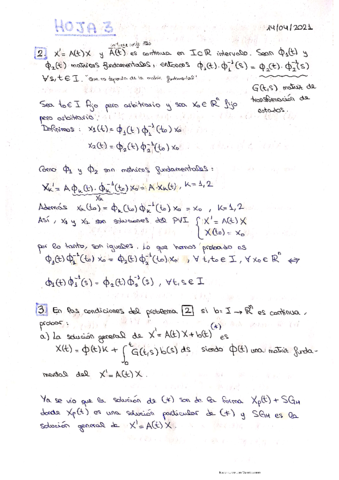 HOJA 3
14/04/2021
2. X' = A(t)X y A(t) es continua en I⊂ℝ intervalo. Sean Φ₁(t) y
Φ₂(t) matrices fundamentales, entonces Φ₁(t)·Φ₁⁻¹(s) = Φ₂(t)·Φ₂⁻¹(s)
∀s,t ∈ I. "Son no depende de la matriz fundamental"
G(t,s) matriz de
transformación de
estados.
Sea t₀∈I fijo pero arbitrario y sea x₀∈ℝⁿ fijo
pero arbitrario.
Definimos: x₁(t) = Φ₁(t)Φ₁⁻¹(t₀)x₀
x₂(t) = Φ₂(t)Φ₂⁻¹(t₀)x₀
Como Φ₁ y Φ₂ son matrices fundamentales:
X'ₖ = A Φₖ(t)·Φₖ⁻¹(t₀)x₀ = A·Xₖ(t), k=1,2
Xₖ
Además xₖ(t₀) = Φₖ(t₀)Φₖ⁻¹(t₀)x₀ = x₀, k=1,2
Así, x₁ y x₂ son soluciones del PVI { X' = A(t)X
X(t₀) = x₀
por lo tanto, son iguales. Lo que hemos probado es
Φ₁(t)Φ₁⁻¹(t₀)x₀ = Φ₂(t)Φ₂⁻¹(t₀)x₀, ∀t,t₀∈I, ∀x₀∈ℝⁿ ⇔
Φ₁(t)Φ₁⁻¹(s) = Φ₂(t)Φ₂⁻¹(s), ∀t,s∈I
3 En las condiciones del problema 2 si b: I → ℝⁿ es continua,
probar:
a) La solución general de X' = A(t)X + b(t) (*) es
X(t) = Φ(t)K + ∫ G(t,s)b(s)ds siendo Φ(t) una matriz funda-
mental del X' = A(t)X.
Ya se vio que la solución de (*) son de la forma Xp(t) + SGH
donde Xp(t) es una solución particular de (*) y SGH es la
solución general de X' = A(t)X.